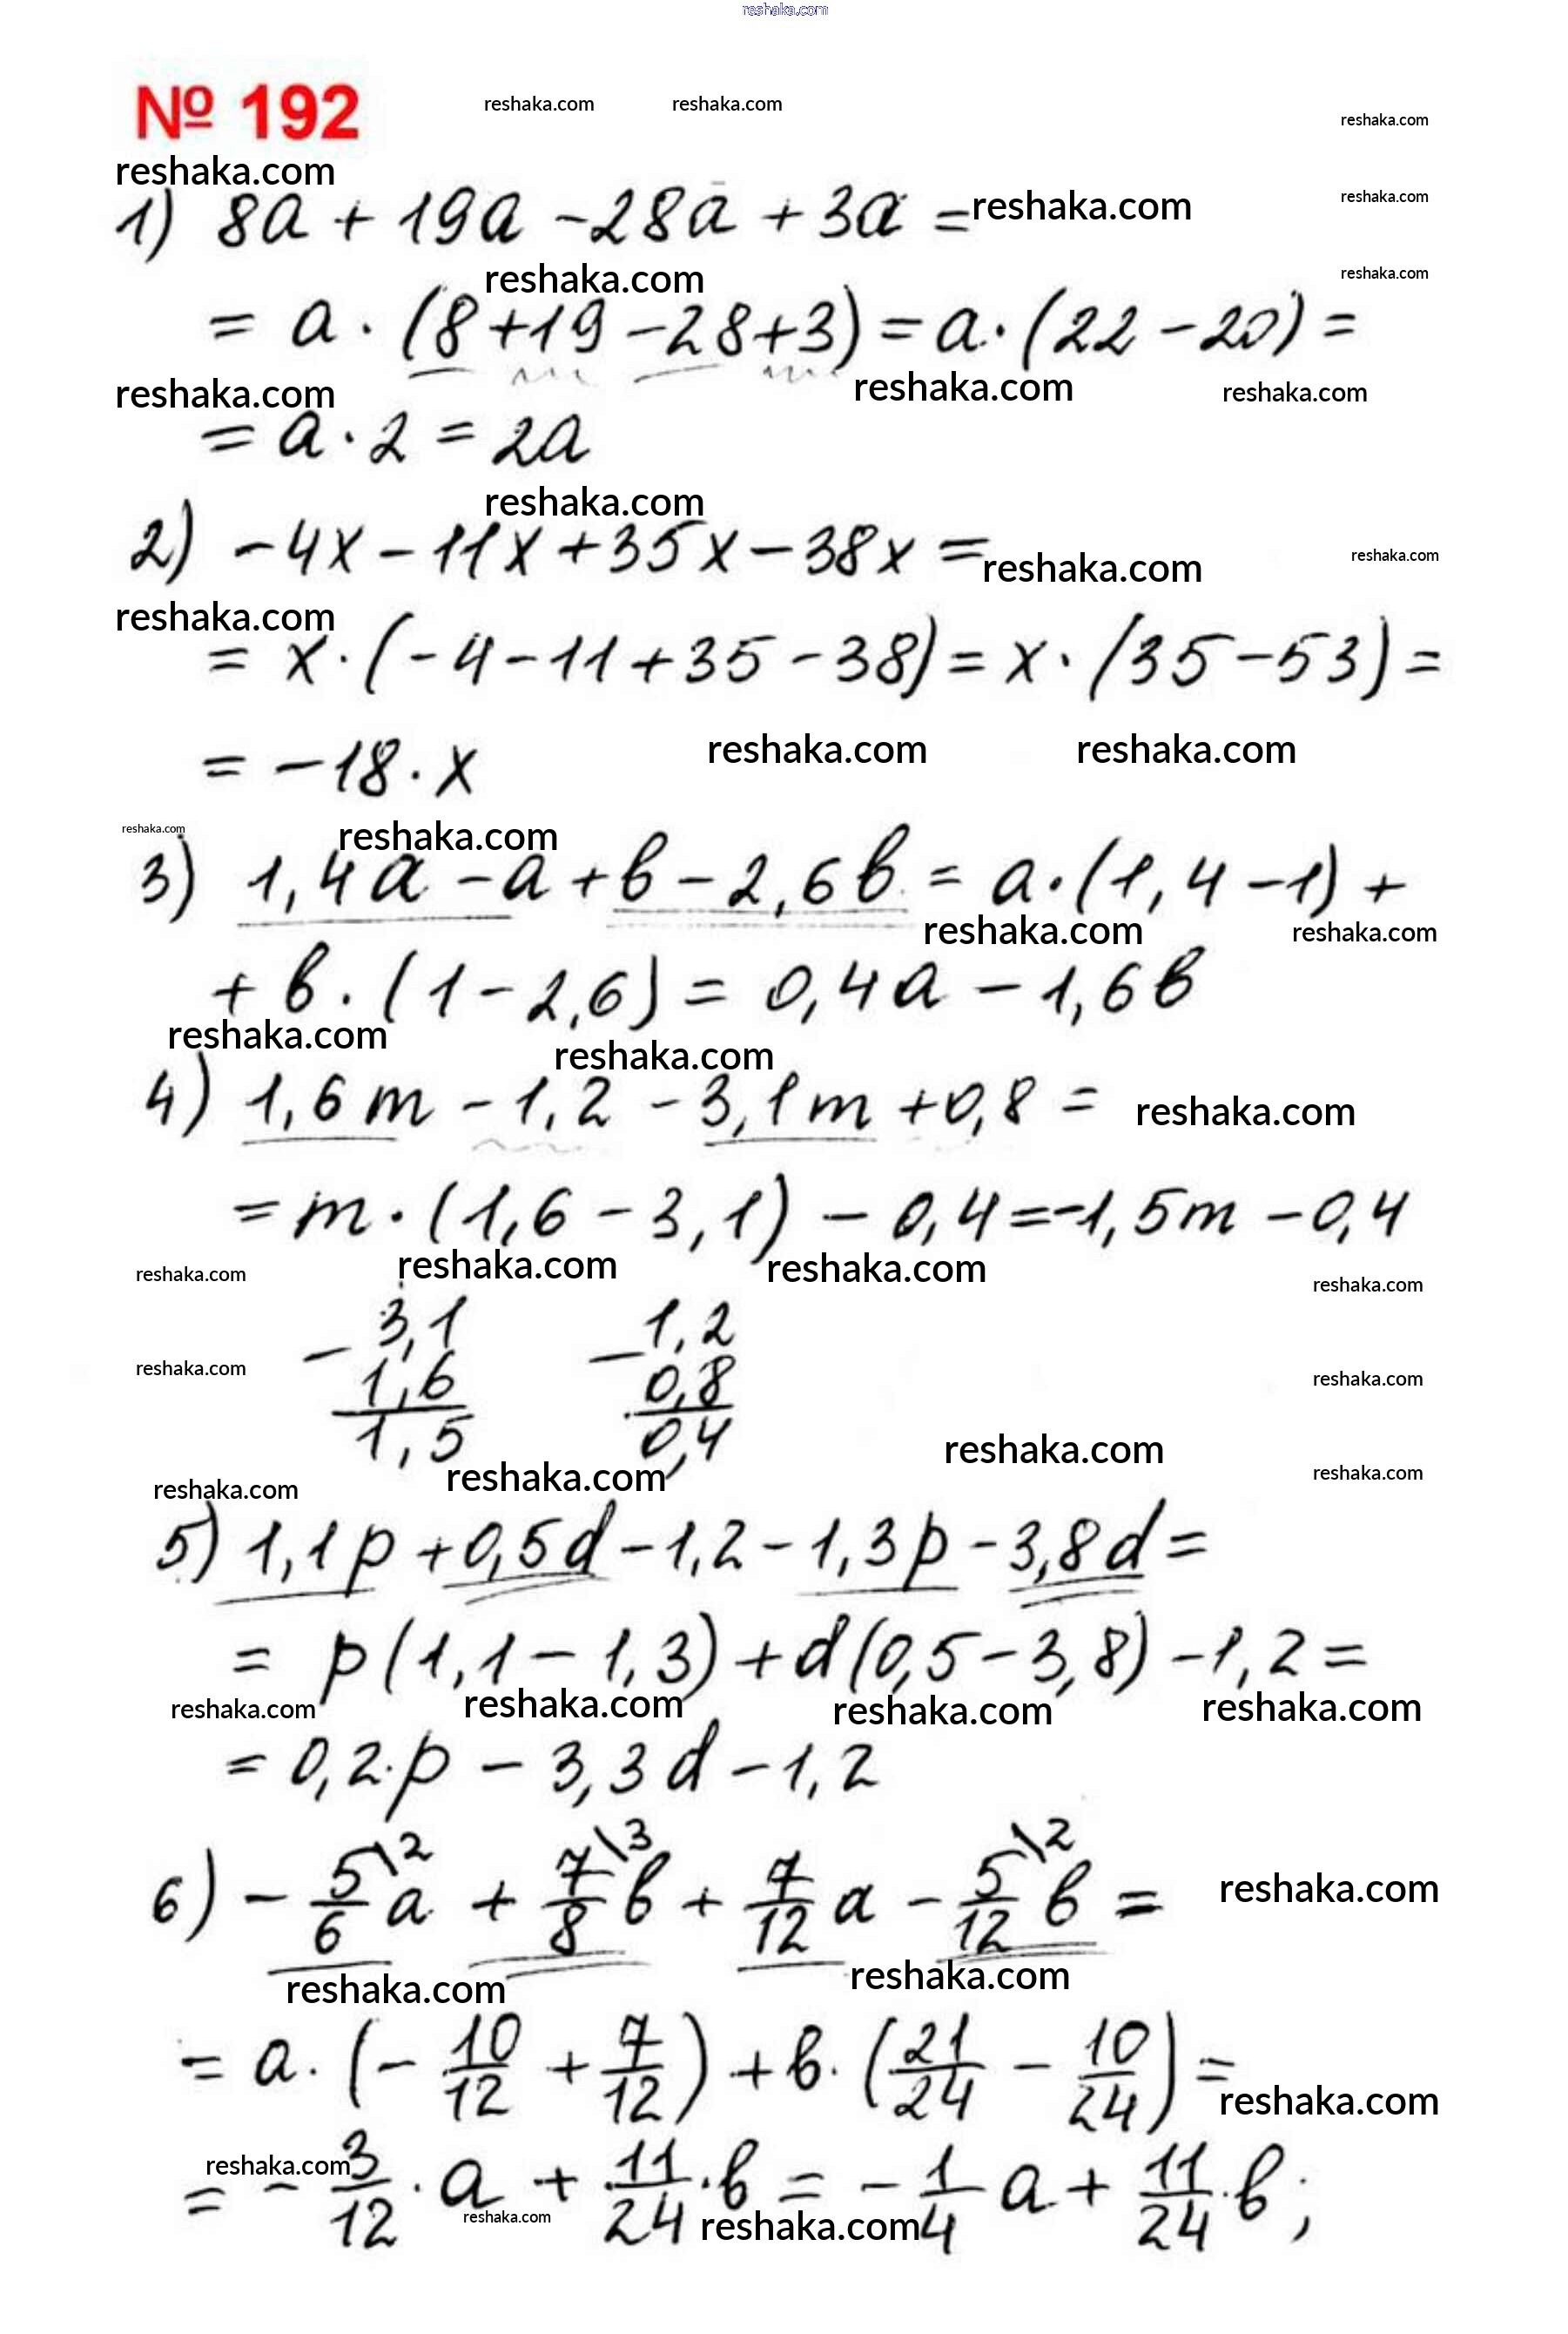 reshaka.com
№ 192
reshaka.com reshaka.com
reshaka.com
reshaka.com
1) 8a + 19a - 28a + 3a = reshaka.com
reshaka.com
reshaka.com
reshaka.com
= a · (8 + 19 - 28 + 3) = a · (22 - 20) =
reshaka.com reshaka.com reshaka.com
= a · 2 = 2a
reshaka.com
2) - 4x - 11x + 35x - 38x = reshaka.com
reshaka.com
reshaka.com
= x · (- 4 - 11 + 35 - 38) = x · (35 - 53) =
reshaka.com reshaka.com
= - 18 · x
reshaka.com reshaka.com
3) 1,4a - a + b - 2,6b = a · (1,4 - 1) +
reshaka.com reshaka.com
+ b · (1 - 2,6) = 0,4a - 1,6b
reshaka.com reshaka.com
4) 1,6m - 1,2 - 3,1m + 0,8 = reshaka.com
= m · (1,6 - 3,1) - 0,4 = -1,5m - 0,4
reshaka.com reshaka.com reshaka.com reshaka.com
- 3,1 - 1,2
reshaka.com 1,6 0,8 reshaka.com
1,5 0,4
reshaka.com
reshaka.com reshaka.com reshaka.com
5) 1,1p + 0,5d - 1,2 - 1,3p - 3,8d =
= p(1,1 - 1,3) + d(0,5 - 3,8) - 1,2 =
reshaka.com reshaka.com reshaka.com reshaka.com
= 0,2·p - 3,3d - 1,2
6) - 5/6\2 a + 7/8\3 b + 7/12 a - 5/12\2 b = reshaka.com
reshaka.com reshaka.com
= a · (- 10/12 + 7/12) + b · (21/24 - 10/24) =
reshaka.com
reshaka.com
= - 3/12 · a + 11/24 · b = - 1/4 a + 11/24 · b ;
reshaka.com reshaka.com